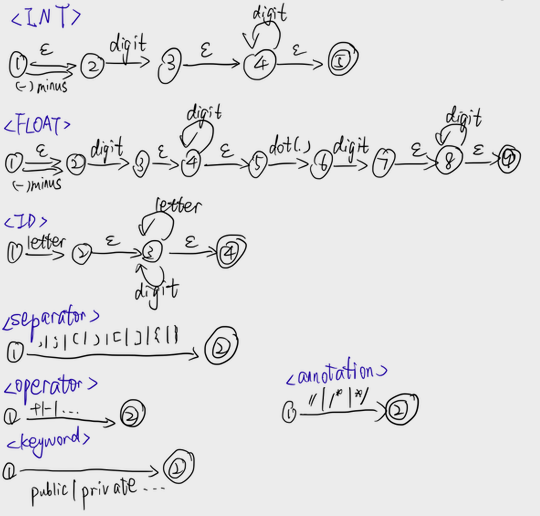 <INT>
① ε (-) minus ② digit ③ ε ④ digit ε ⑤
<FLOAT>
① ε (-) minus ② digit ③ ε ④ digit ε ⑤ dot(.) ⑥ digit ⑦ ε ⑧ digit ε ⑨
<ID>
① letter ② ε ③ letter digit ε ④
<separator>
① , | ; | ( | ) | [ | ] | { | } ②
<operator>
① +|-|... ②
<annotation>
① //|/*|*/ ②
<keyword>
① public/private ... ②